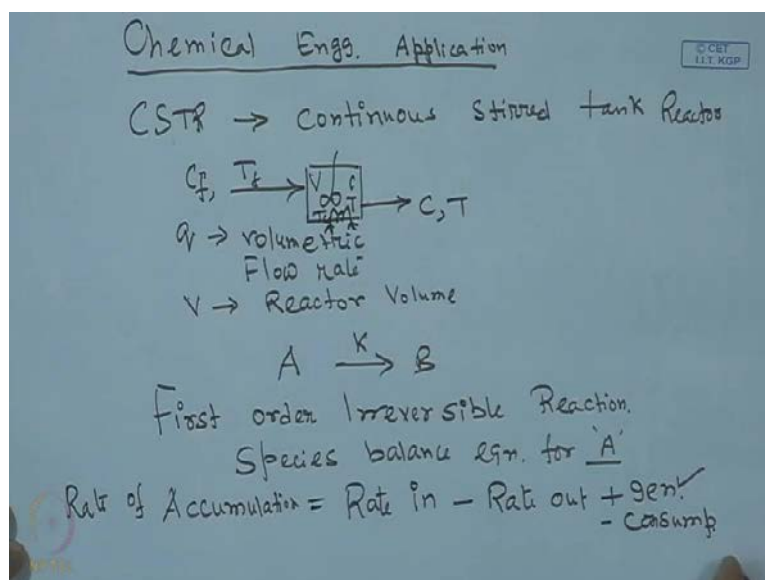 Chemical Engg. Application
© CET
I.I.T. KGP
CSTR → Continuous Stirred tank Reactor
Cf, Tf → V C T → C, T
q → volumetric
Flow rate
V → Reactor Volume
A K→ B
First order Irreversible Reaction.
Species balance eqn. for 'A'
Rate of Accumulation = Rate in - Rate out + gen.
- Consump.